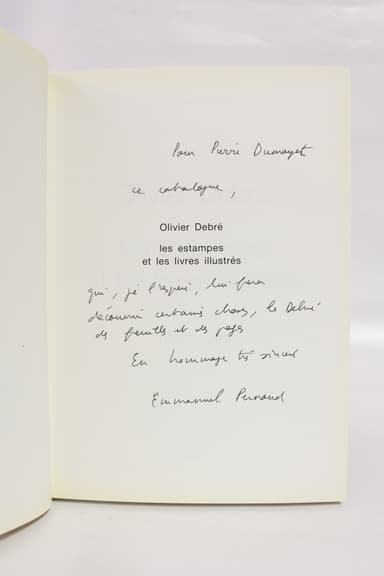 Pour Pierre Dumayet
ce catalogue,
Olivier Debré
les estampes
et les livres illustrés
qui, je l'espère, lui fera
découvrir certaines choses, le Debré
des feuilles et des pages
En hommage très sincère
Emmanuel Pernoud